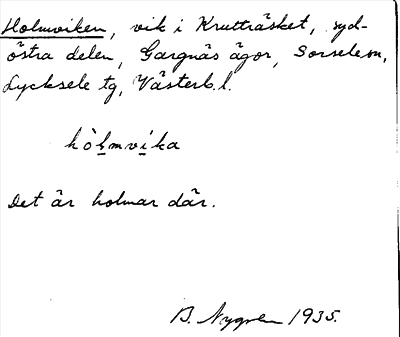 Holmviken, vik i Krutträsket, syd-
östra delen, Gargnäs ägor, Sorsele sn,
Lycksele tg, Västerb. l.
hòl̲mvi̲ka
Det är holmar där.
B. Nygren 1935.